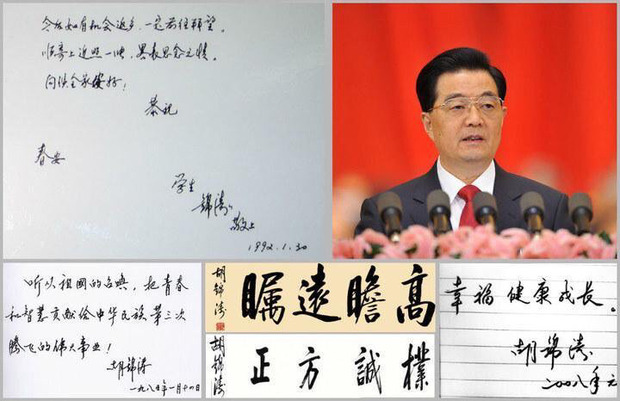 今后如有机会返乡,一定前往拜望。
顺寄上近照一帧,畧表思念之情。
问候全家安好!
恭祝
春安
学生
锦涛
敬上
1992.1.30
听从祖国的召唤,把青春
和智慧贡献给中华民族第三次
腾飞的伟大事业!
胡锦涛
一九八五年一月十四日
高瞻遠瞩
胡錦涛
樸誠方正
胡錦涛
幸福健康成长。
胡锦涛
二〇〇八年元